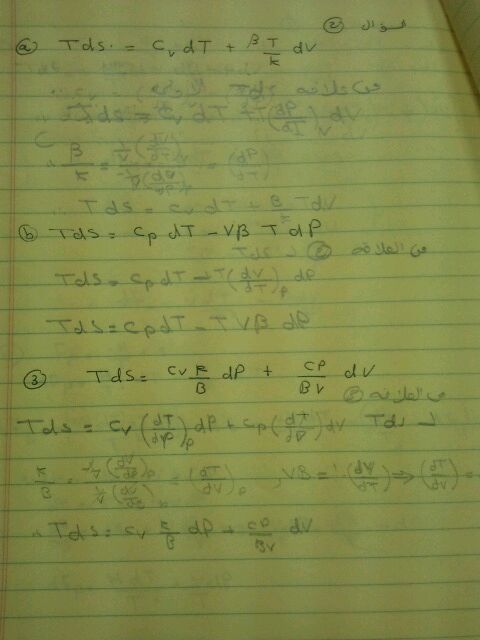 السؤال (2)
(a) Tds = Cv dT + β T/k dv
من علاقة Tds الأولى
Tds = Cv dT + T(dP/dT)v dV
∴ β/k = (1/V (dV/dT)) / (-1/V (dV/dP)) = (dP/dT)
∴ Tds = Cv dT + β/k T dV
(b) Tds = Cp dT - Vβ T dP
من العلاقة (2) لـ Tds
Tds = Cp dT - T(dV/dT)p dp
Tds = Cp dT - T Vβ dp
(3) Tds = Cv k/β dP + CP/βV dV
من العلاقة (3) لـ Tds
Tds = Cv (dT/dP) dP + Cp (dT/dV) dV
k/β = (-1/V (dV/dP)) / (1/V (dV/dT)) = (dT/dP), Vβ = (dV/dT) ⇒ (dT/dV) =
∴ Tds = Cv k/β dP + CP/βV dV